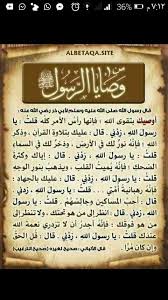 ٧:١٢ م
٥٦%
ALBETAQA.SITE
وصايا الرسول
قال رسول الله صلى الله عليه وسلم لأبي ذر رضي الله عنه :
أوصيك بتقوى الله ؛ فإنها رأس الأمر كله قلت : يا
رسول الله ، زدني . قال : عليك بتلاوة القرآن ، وذكر
الله ؛ فإنه نور لك في الأرض ، وذخر لك في السماء
قلت : يا رسول الله ، زدني . قال : إياك وكثرة
الضحك ؛ فإنه يميت القلب ، ويذهب بنور الوجه
قلت : يا رسول الله ، زدني . قال : عليك بالجهاد ؛
فإنه رهبانية أمتي . قلت : يا رسول الله ، زدني
قال : أحب المساكين وجالسهم . قلت : يا رسول
الله ، زدني . قال : انظر إلى من هو تحتك ، ولا تنظر إلى
من هو فوقك ؛ فإنه أجدر أن لا تزدري نعمة الله
عندك قلت : يا رسول الله ، زدني . قال : قل الحق
وإن كان مرا .
قال الألباني : صحيح لغيره (صحيح الترغيب)